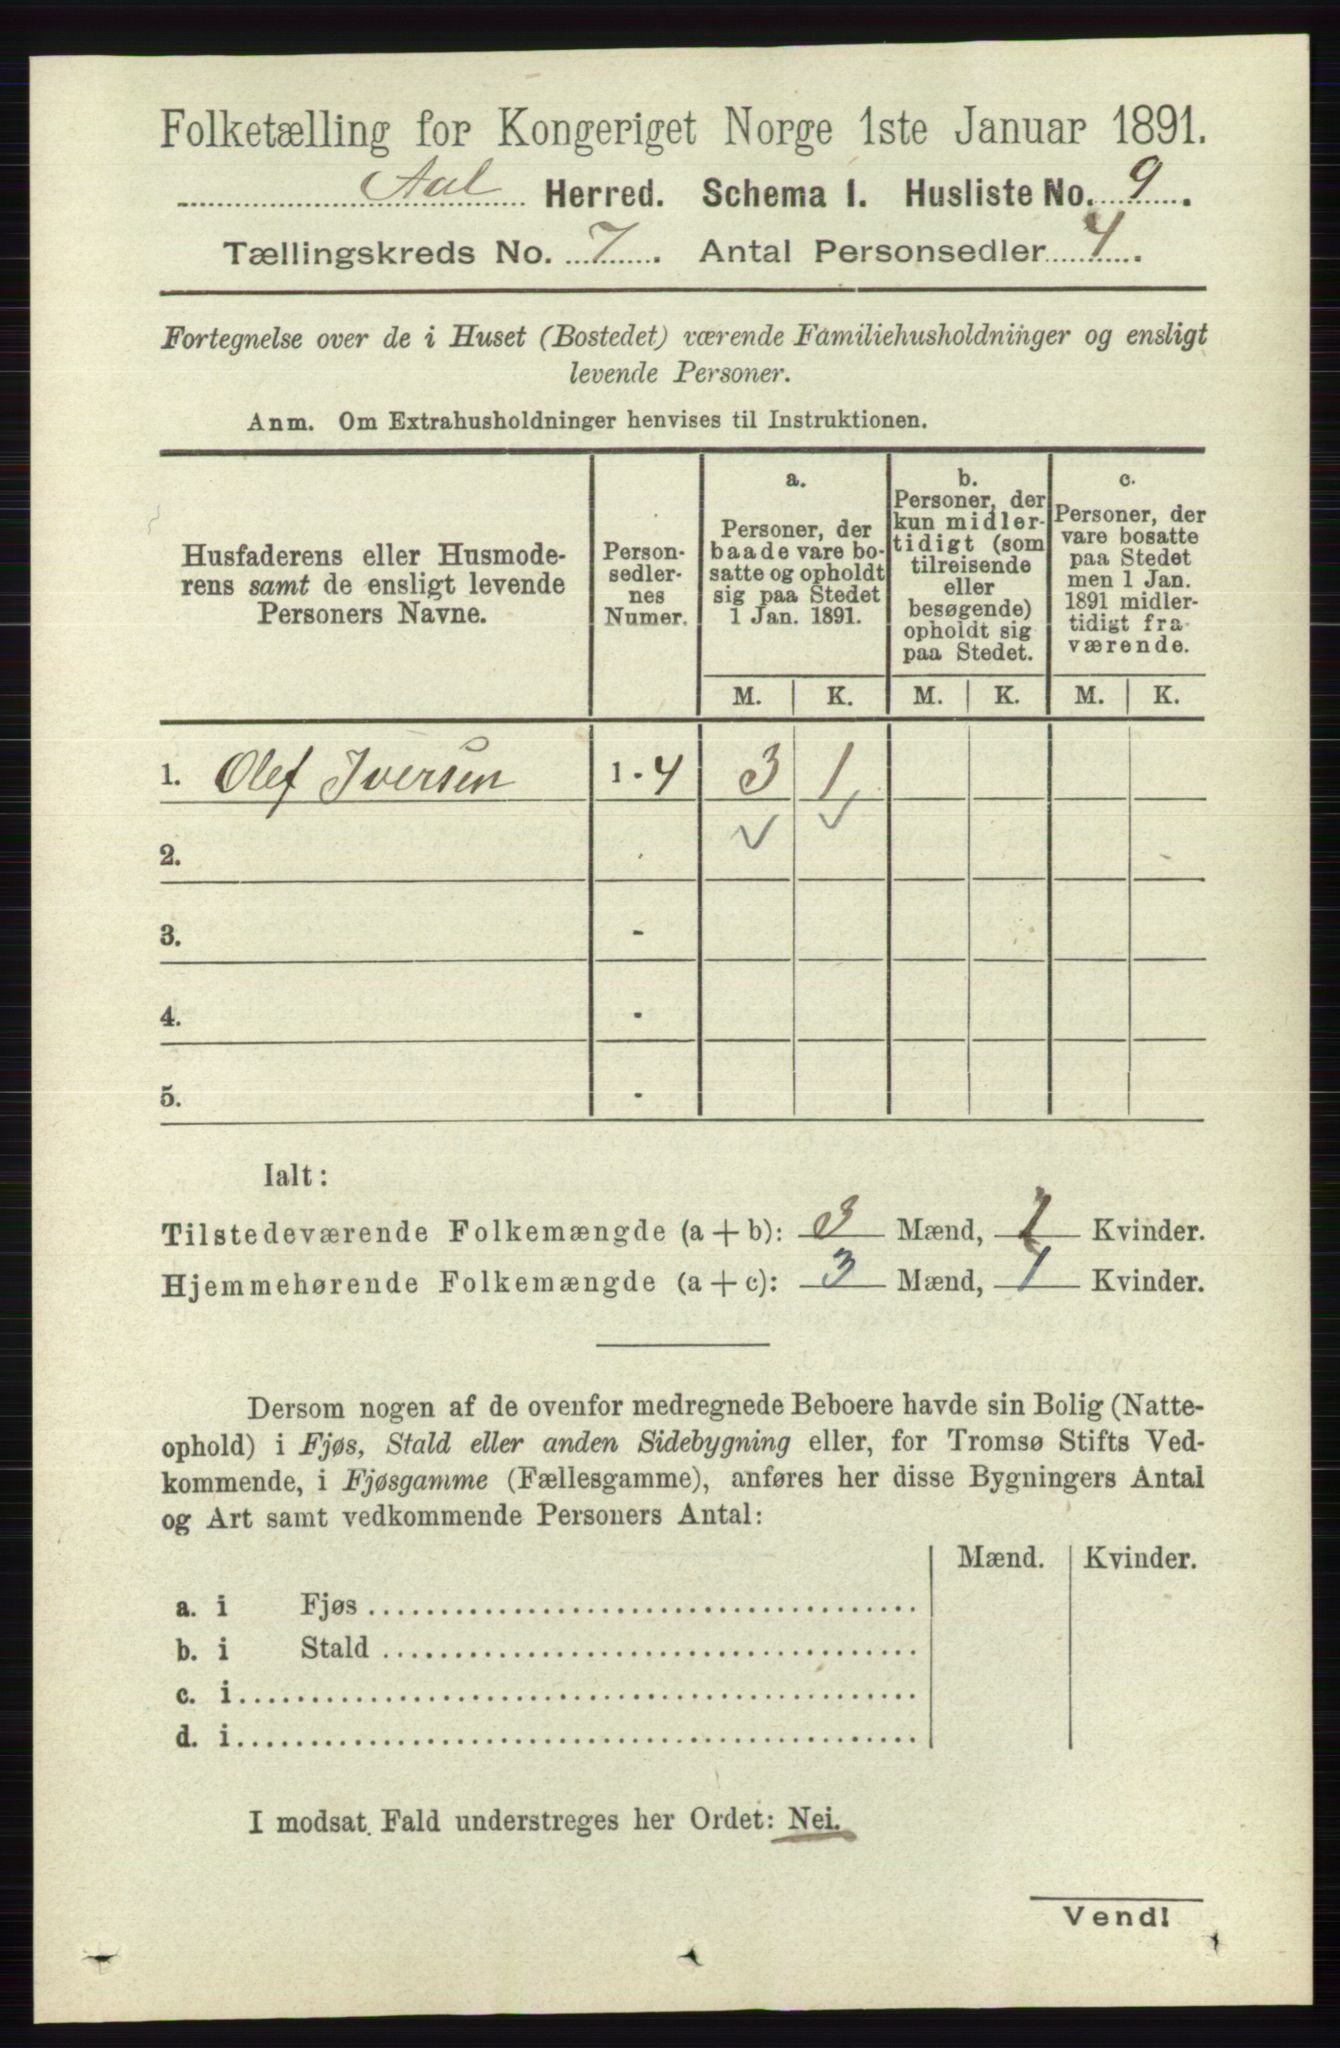 Folketælling for Kongeriget Norge 1ste Januar 1891.
Aal Herred. Schema 1. Husliste No. 9.
Tællingskreds No. 7. Antal Personsedler 4.
Fortegnelse over de i Huset (Bostedet) værende Familiehusholdninger og ensligt
levende Personer.
Anm. Om Extrahusholdninger henvises til Instruktionen.
Husfaderens eller Husmode-
rens samt de ensligt levende
Personers Navne.
Person-
sedler-
nes
Numer.
a.
Personer, der
baade vare bo-
satte og opholdt
sig paa Stedet
1 Jan. 1891.
b.
Personer, der
kun midler-
tidigt (som
tilreisende
eller
besøgende)
opholdt sig
paa Stedet.
c.
Personer, der
vare bosatte
paa Stedet
men 1 Jan.
1891 midler-
tidigt fra-
værende.
M. K. M. K. M. K.
1. Olef Iversen 1 - 4 3 1
2.
3. -
4. -
5. -
Ialt:
Tilstedeværende Folkemængde (a + b): 3 Mænd, 1 Kvinder.
Hjemmehørende Folkemængde (a + c): 3 Mænd, 1 Kvinder.
Dersom nogen af de ovenfor medregnede Beboere havde sin Bolig (Natte-
ophold) i Fjøs, Stald eller anden Sidebygning eller, for Tromsø Stifts Ved-
kommende, i Fjøsgamme (Fællesgamme), anføres her disse Bygningers Antal
og Art samt vedkommende Personers Antal:
Mænd. Kvinder.
a. i Fjøs
b. i Stald
c. i
d. i
I modsat Fald understreges her Ordet: Nei.
Vend!